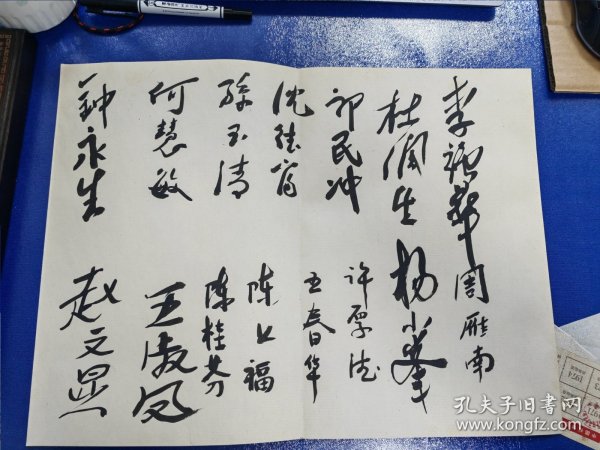 李瑞華
周雁南
杜佩生
杨小峯
邓民冲
许厚德
沈继宵
王春华
孫玉清
陈上福
陈桂芬
何慧敏
王淑凤
鈡永生
赵文显
孔夫子旧书网
www.kongfz.com